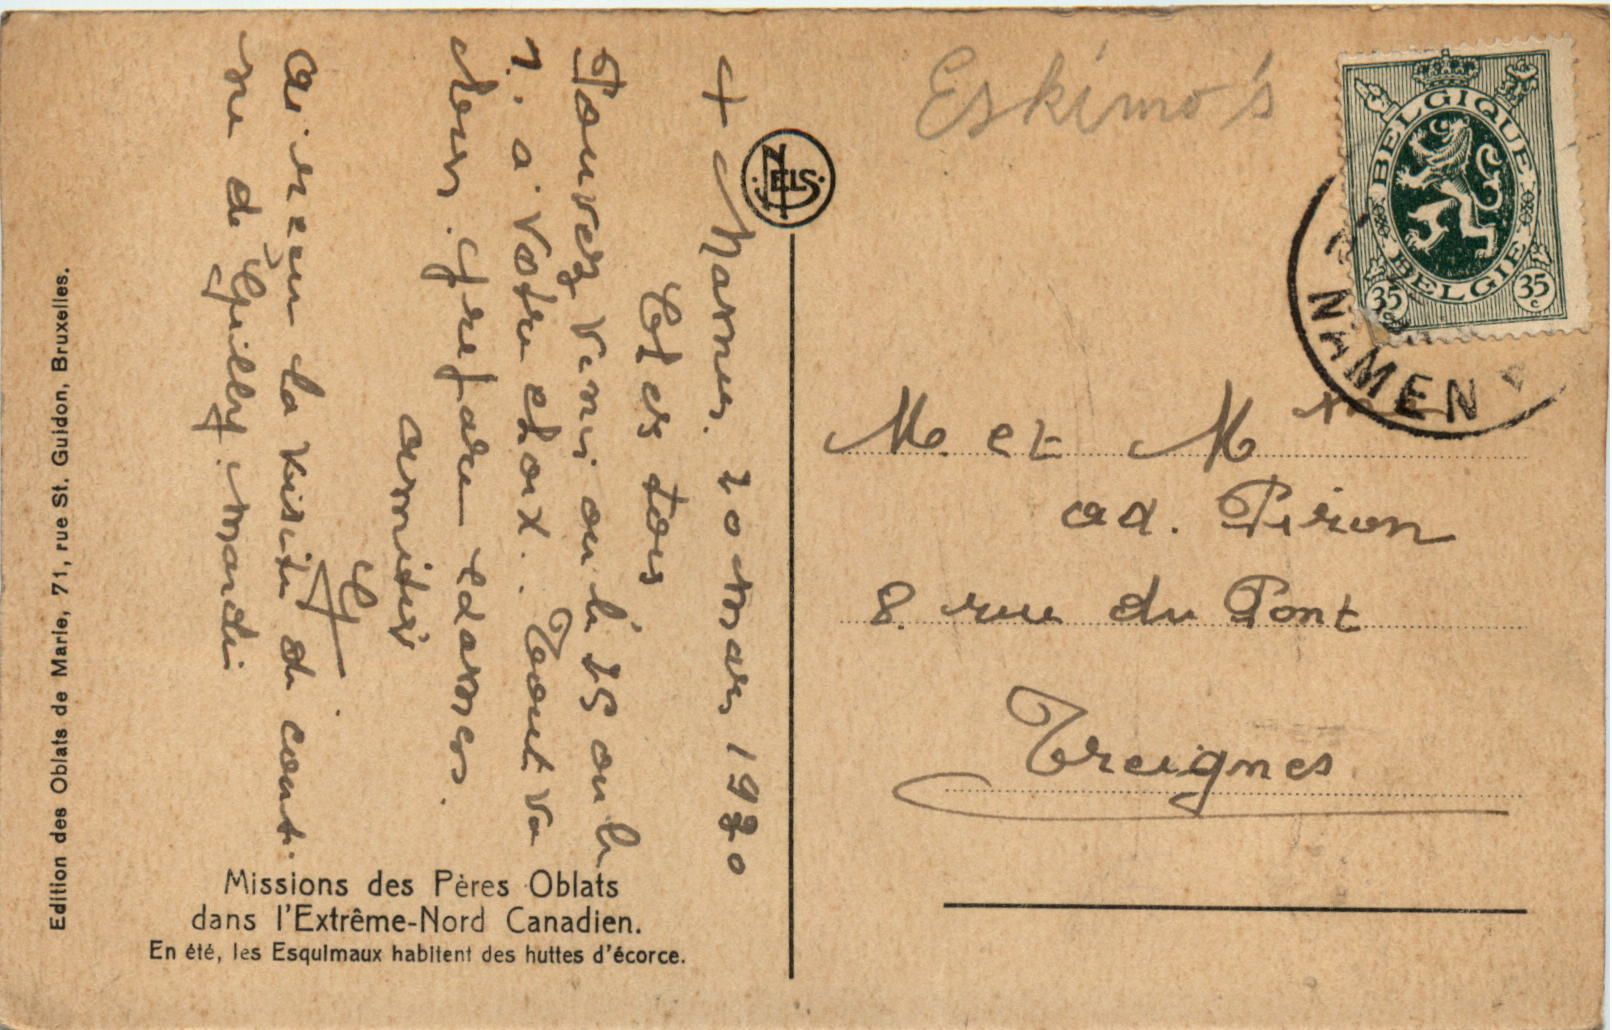 + Namur. 20 mars 1930
Chers tous
Pouvez venir ou le 15 ou le
1. à votre choix. Tout va
bien.
amitiés
ai reçu la visite de
de Gilly mardi
Missions des Pères Oblats
dans l'Extrême-Nord Canadien.
En été, les Esquimaux habitent des huttes d'écorce.
Edition des Oblats de Marie, 71, rue St. Guidon, Bruxelles.
NELS
Eskimo's
BELGIQUE
BELGIE
35c 35c
NAMEN
M. et Mme
Ad. Piron
8. rue du Pont
Treignes